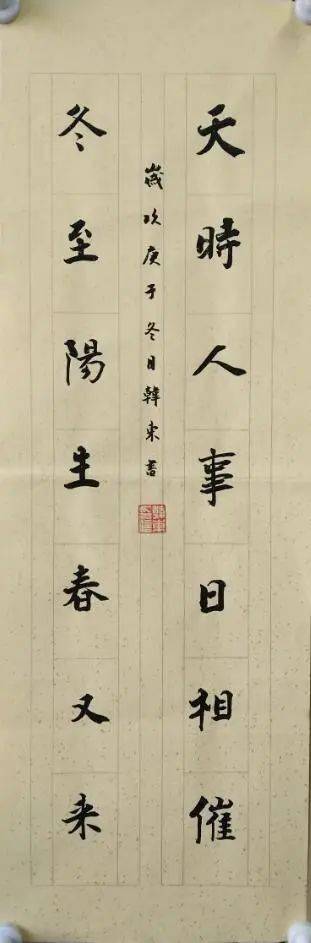 天時人事日相催
冬至陽生春又来
歲次庚子冬日韓東書